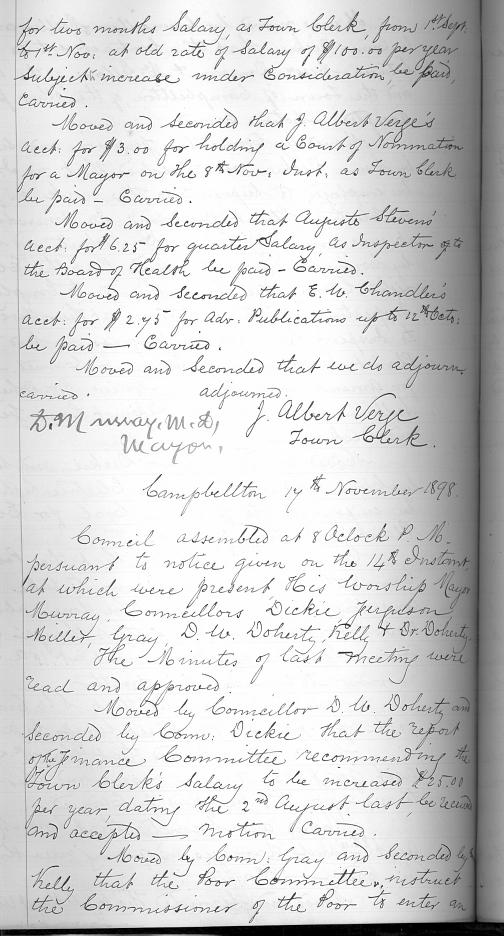 for two months Salary, as Town Clerk, from 1st Sept:
to 1st Nov: at old rate of Salary of $100.00 per year
Subject increase under Consideration, be paid,
Carried.
Moved and seconded that J. Albert Verge's
acct: for $3.00 for holding a Court of Nomination
for a Mayor on the 8th Nov: Inst: as Town Clerk
be paid – Carried.
Moved and seconded that Auguste Stevens'
acct: for $6.25 for quarter Salary, as Inspector to
the Board of Health be paid – Carried.
Moved and seconded that E. W. Chandler's
acct: for $2.75 for Adv: Publications up to 12th Octo:
be paid — Carried.
Moved and Seconded that we do adjourn,
carried. adjourned.
D. Murray, M.D, J. Albert Verge
Mayor, Town Clerk.
Campbellton 17th November 1898.
Council assembled at 8 Oclock P. M.
persuant to notice given on the 14th Instant,
at which were present, His Worship Mayor
Murray, Councillors, Dickie, Ferguson
Miller, Gray, D. W. Doherty, Kelly & Dr. Doherty.
The Minutes of last meeting were
read and approved.
Moved by Councillor D. W. Doherty and
seconded by Coun: Dickie that the report
of the Finance Committee recommending the
Town Clerk's Salary to be increased $25.00
per year, dating the 2nd August last, be received
and accepted — Motion Carried.
Moved by Coun: Gray and Seconded by
Kelly that the Poor Committee, instruct
the Commissioner of the Poor to enter an